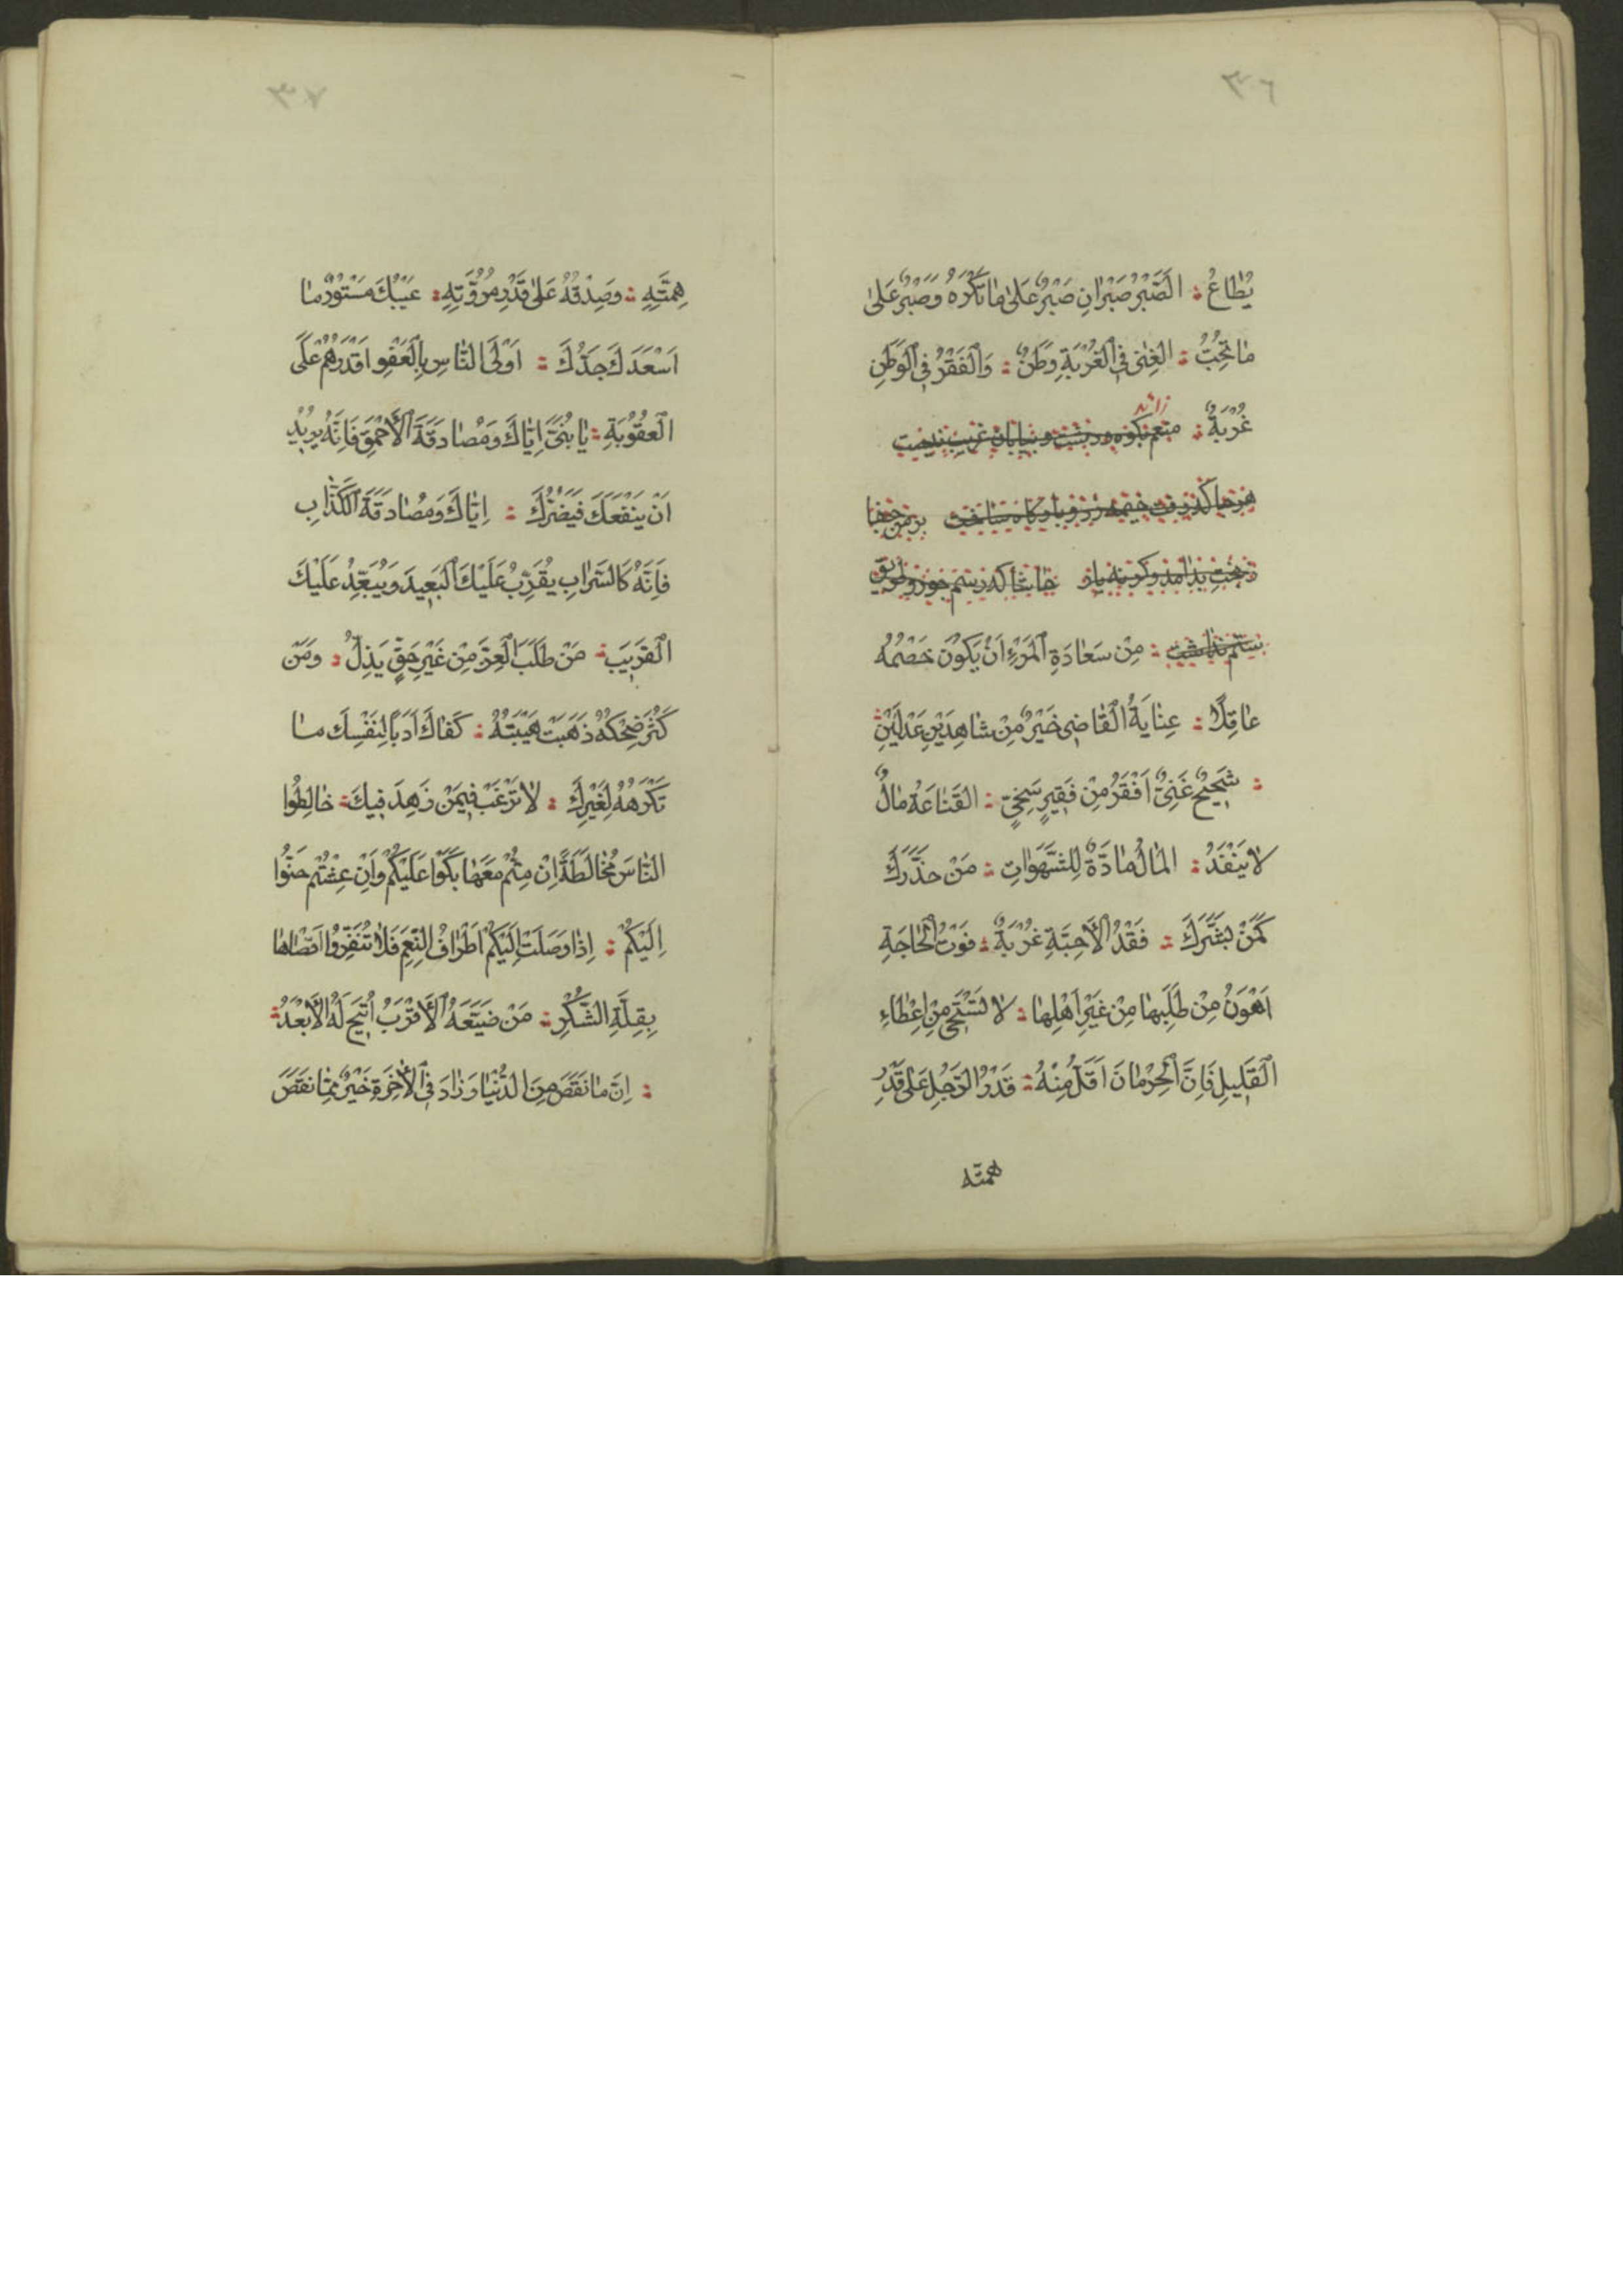 ٣٦
يُطَاعُ : الصَّبْرُ صَبْرَانِ صَبْرٌ عَلَىٰ مَا تَكْرَهُ وَصَبْرٌ عَلَىٰ
مَا تُحِبُّ : الغِنىٰ فِي الْغُرْبَةِ وَطَنٌ : وَالْفَقْرُ فِي الْوَطَنِ
غُرْبَةٌ : منعم بكوه و دشت و بيابان غريب نيست
زائد
هرجا كه رفت خيمه زد و بارگاه ساخت
بستم نذاشت : مِنْ سَعَادَةِ الْمَرْءِ اَنْ يَكُونَ خَصْمُهُ
عَاقِلًا : عِنَايَةُ الْقَاضِي خَيْرٌ مِنْ شَاهِدَيْنِ عَدْلَيْنِ :
: شَحِيحٌ غَنِيٌّ اَفْقَرُ مِنْ فَقِيرٍ سَخِيٍّ : القَنَاعَةُ مَالٌ
لَا يَنْفَدُ : المَالُ مَادَّةٌ لِلشَّهَوَاتِ : مَنْ حَذَّرَكَ
كَمَنْ بَشَّرَكَ : فَقْدُ الْاَحِبَّةِ غُرْبَةٌ : فَوْتُ الْحَاجَةِ
اَهْوَنُ مِنْ طَلَبِهَا مِنْ غَيْرِ اَهْلِهَا : لَا تَسْتَحْيِ مِنْ اِعْطَاءِ
الْقَلِيلِ فَاِنَّ الْحِرْمَانَ اَقَلُّ مِنْهُ : قَدْرُ الرَّجُلِ عَلىٰ قَدْرِ
همته
٣٧
هِمَّتِهِ : وَصِدْقُهُ عَلىٰ قَدْرِ مُرُوَّتِهِ : عَيْبُكَ مَسْتُورٌ مَا
اَسْعَدَكَ جَدُّكَ : اَوْلَى النَّاسِ بِالْعَفْوِ اَقْدَرُهُمْ عَلَى
الْعُقُوبَةِ : يَا بُنَيَّ اِيَّاكَ وَمُصَادَقَةَ الْاَحْمَقِ فَاِنَّهُ يُرِيدُ
اَنْ يَنْفَعَكَ فَيَضُرُّكَ : اِيَّاكَ وَمُصَادَقَةَ الْكَذَّابِ
فَاِنَّهُ كَالسَّرَابِ يُقَرِّبُ عَلَيْكَ الْبَعِيدَ وَيُبَعِّدُ عَلَيْكَ
الْقَرِيبَ : مَنْ طَلَبَ الْعِزَّ مِنْ غَيْرِ حَقٍّ يَذِلُّ : وَمَنْ
كَثُرَ ضِحْكُهُ ذَهَبَتْ هَيْبَتُهُ : كَفَاكَ اَدَبًا لِنَفْسِكَ مَا
تَكْرَهُهُ لِغَيْرِكَ : لَا تَرْغَبْ فِيمَنْ زَهِدَ فِيكَ : خَالِطُوا
النَّاسَ مُخَالَطَةً اِنْ مِتُّمْ مَعَهَا بَكَوْا عَلَيْكُمْ وَاِنْ عِشْتُمْ حَنُّوا
اِلَيْكُمْ : اِذَا وَصَلَتْ اِلَيْكُمْ اَطْرَافُ النِّعَمِ فَلَا تُنَفِّرُوا اَقْصَاهَا
بِقِلَّةِ الشُّكْرِ : مَنْ ضَيَّعَهُ الْاَقْرَبُ اُتِيحَ لَهُ الْاَبْعَدُ :
: اِنَّ مَا نَقَصَ مِنَ الدُّنْيَا وَزَادَ فِي الْاٰخِرَةِ خَيْرٌ مِمَّا نَقَصَ